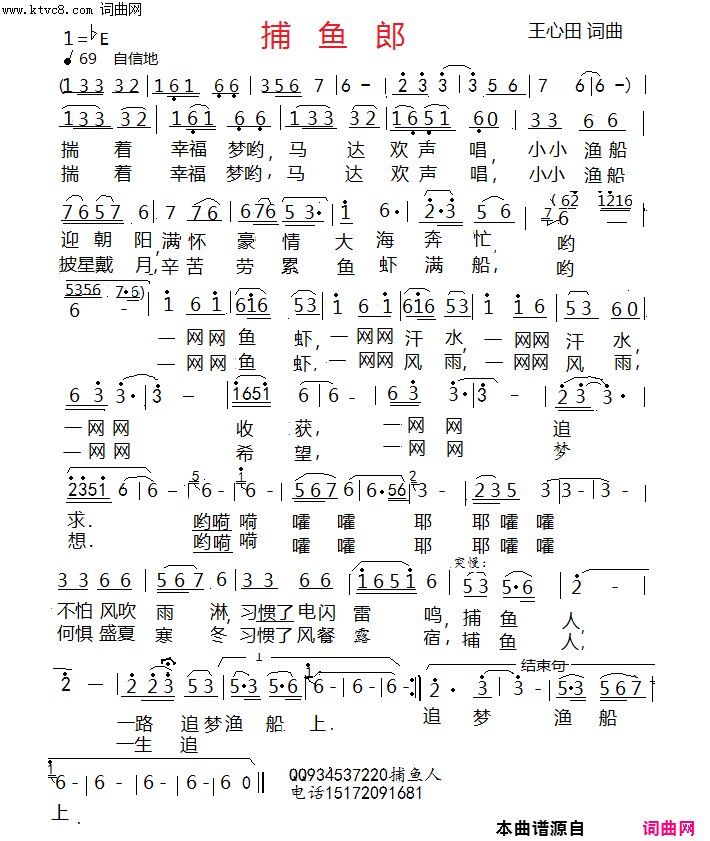 www.ktvc8.com 词曲网
捕 鱼 郎
王心田 词曲
1=♭E
69 自信地
(1 3 3 3 2 1 6 1 6 6 3 5 6 7 6 - 2 3 3 3 5 6 7 6 6 -)
1 3 3 3 2 1 6 1 6 6 1 3 3 3 2 1 6 5 1 6 0 3 3 6 6
揣 着 幸福 梦哟, 马 达 欢 声 唱, 小小 渔船
揣 着 幸福 梦哟, 马 达 欢 声 唱, 小小 渔船
(6 2 1 2 1 6
7 6 5 7 6 7 7 6 6 7 6 5 3· 1 6· 2·3 5 6 7 6 -
迎 朝 阳, 满 怀 豪 情 大 海 奔 忙, 哟
披星戴 月, 辛 苦 劳 累 鱼 虾 满 船, 哟
5 3 5 6 7·6)
6 - 1 6 1 6 1 6 5 3 1 6 1 6 1 6 5 3 1 1 6 1 6 5 3 6 0
一 网网 鱼 虾, 一 网网 汗 水, 一 网网 汗 水,
一 网网 鱼 虾, 一 网网 风 雨, 一 网网 风 雨,
6 3 3· 3 - 1 6 5 1 6 6 - 6 3 3· 3 - 2 3 3·
一 网 网 收 获, 一 网 网 追
一 网 网 希 望, 一 网 网 梦
2 3 5 1 6 6 - 5 6 - 1 6 - 5 6 7 6 6· 5 6 2 3 - 2 3 5 3
求. 哟嗬 嗬 嚯 嚯 耶 耶 嚯 嚯
想. 哟嗬 嗬 嚯 嚯 耶 耶 嚯 嚯
突慢:
3 3 6 6 5 6 7 6 3 3 6 6 1 6 5 1 6 5 3 5·6 2 -
不怕 风吹 雨 淋, 习惯了 电闪 雷 鸣, 捕 鱼 人,
何惧 盛夏 寒 冬 习惯了 风餐 露 宿, 捕 鱼 人,
1 结束句
2 — 2 2 3 5 3 5·3 5·6 1 6 - 6 - 6 - 6 - :‖ 2· 3 3 5·3 5 6 7
一路 追 梦 渔 船 上. 追 梦 渔 船
一生 追
1 6 - 6 - 6 - 6 - 6 - 6 0 ‖
上.
QQ934537220捕鱼人
电话15172091681
本曲谱源自 词曲网